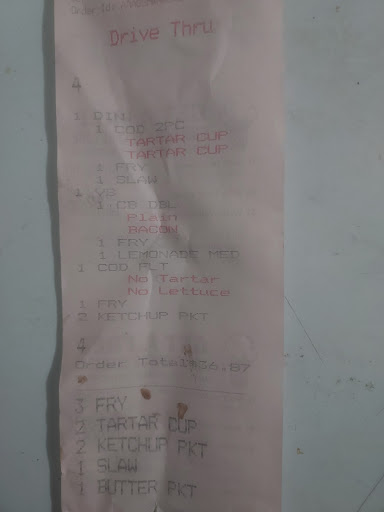 Drive Thru
4
1 DIN
1 COD 2PC
TARTAR CUP
TARTAR CUP
1 FRY
1 SLAW
1 VB
1 CB DBL
Plain
BACON
1 FRY
1 LEMONADE MED
1 COD FLT
No Tartar
No Lettuce
1 FRY
2 KETCHUP PKT
4
Order Total$36.87
3 FRY
2 TARTAR CUP
2 KETCHUP PKT
1 SLAW
1 BUTTER PKT